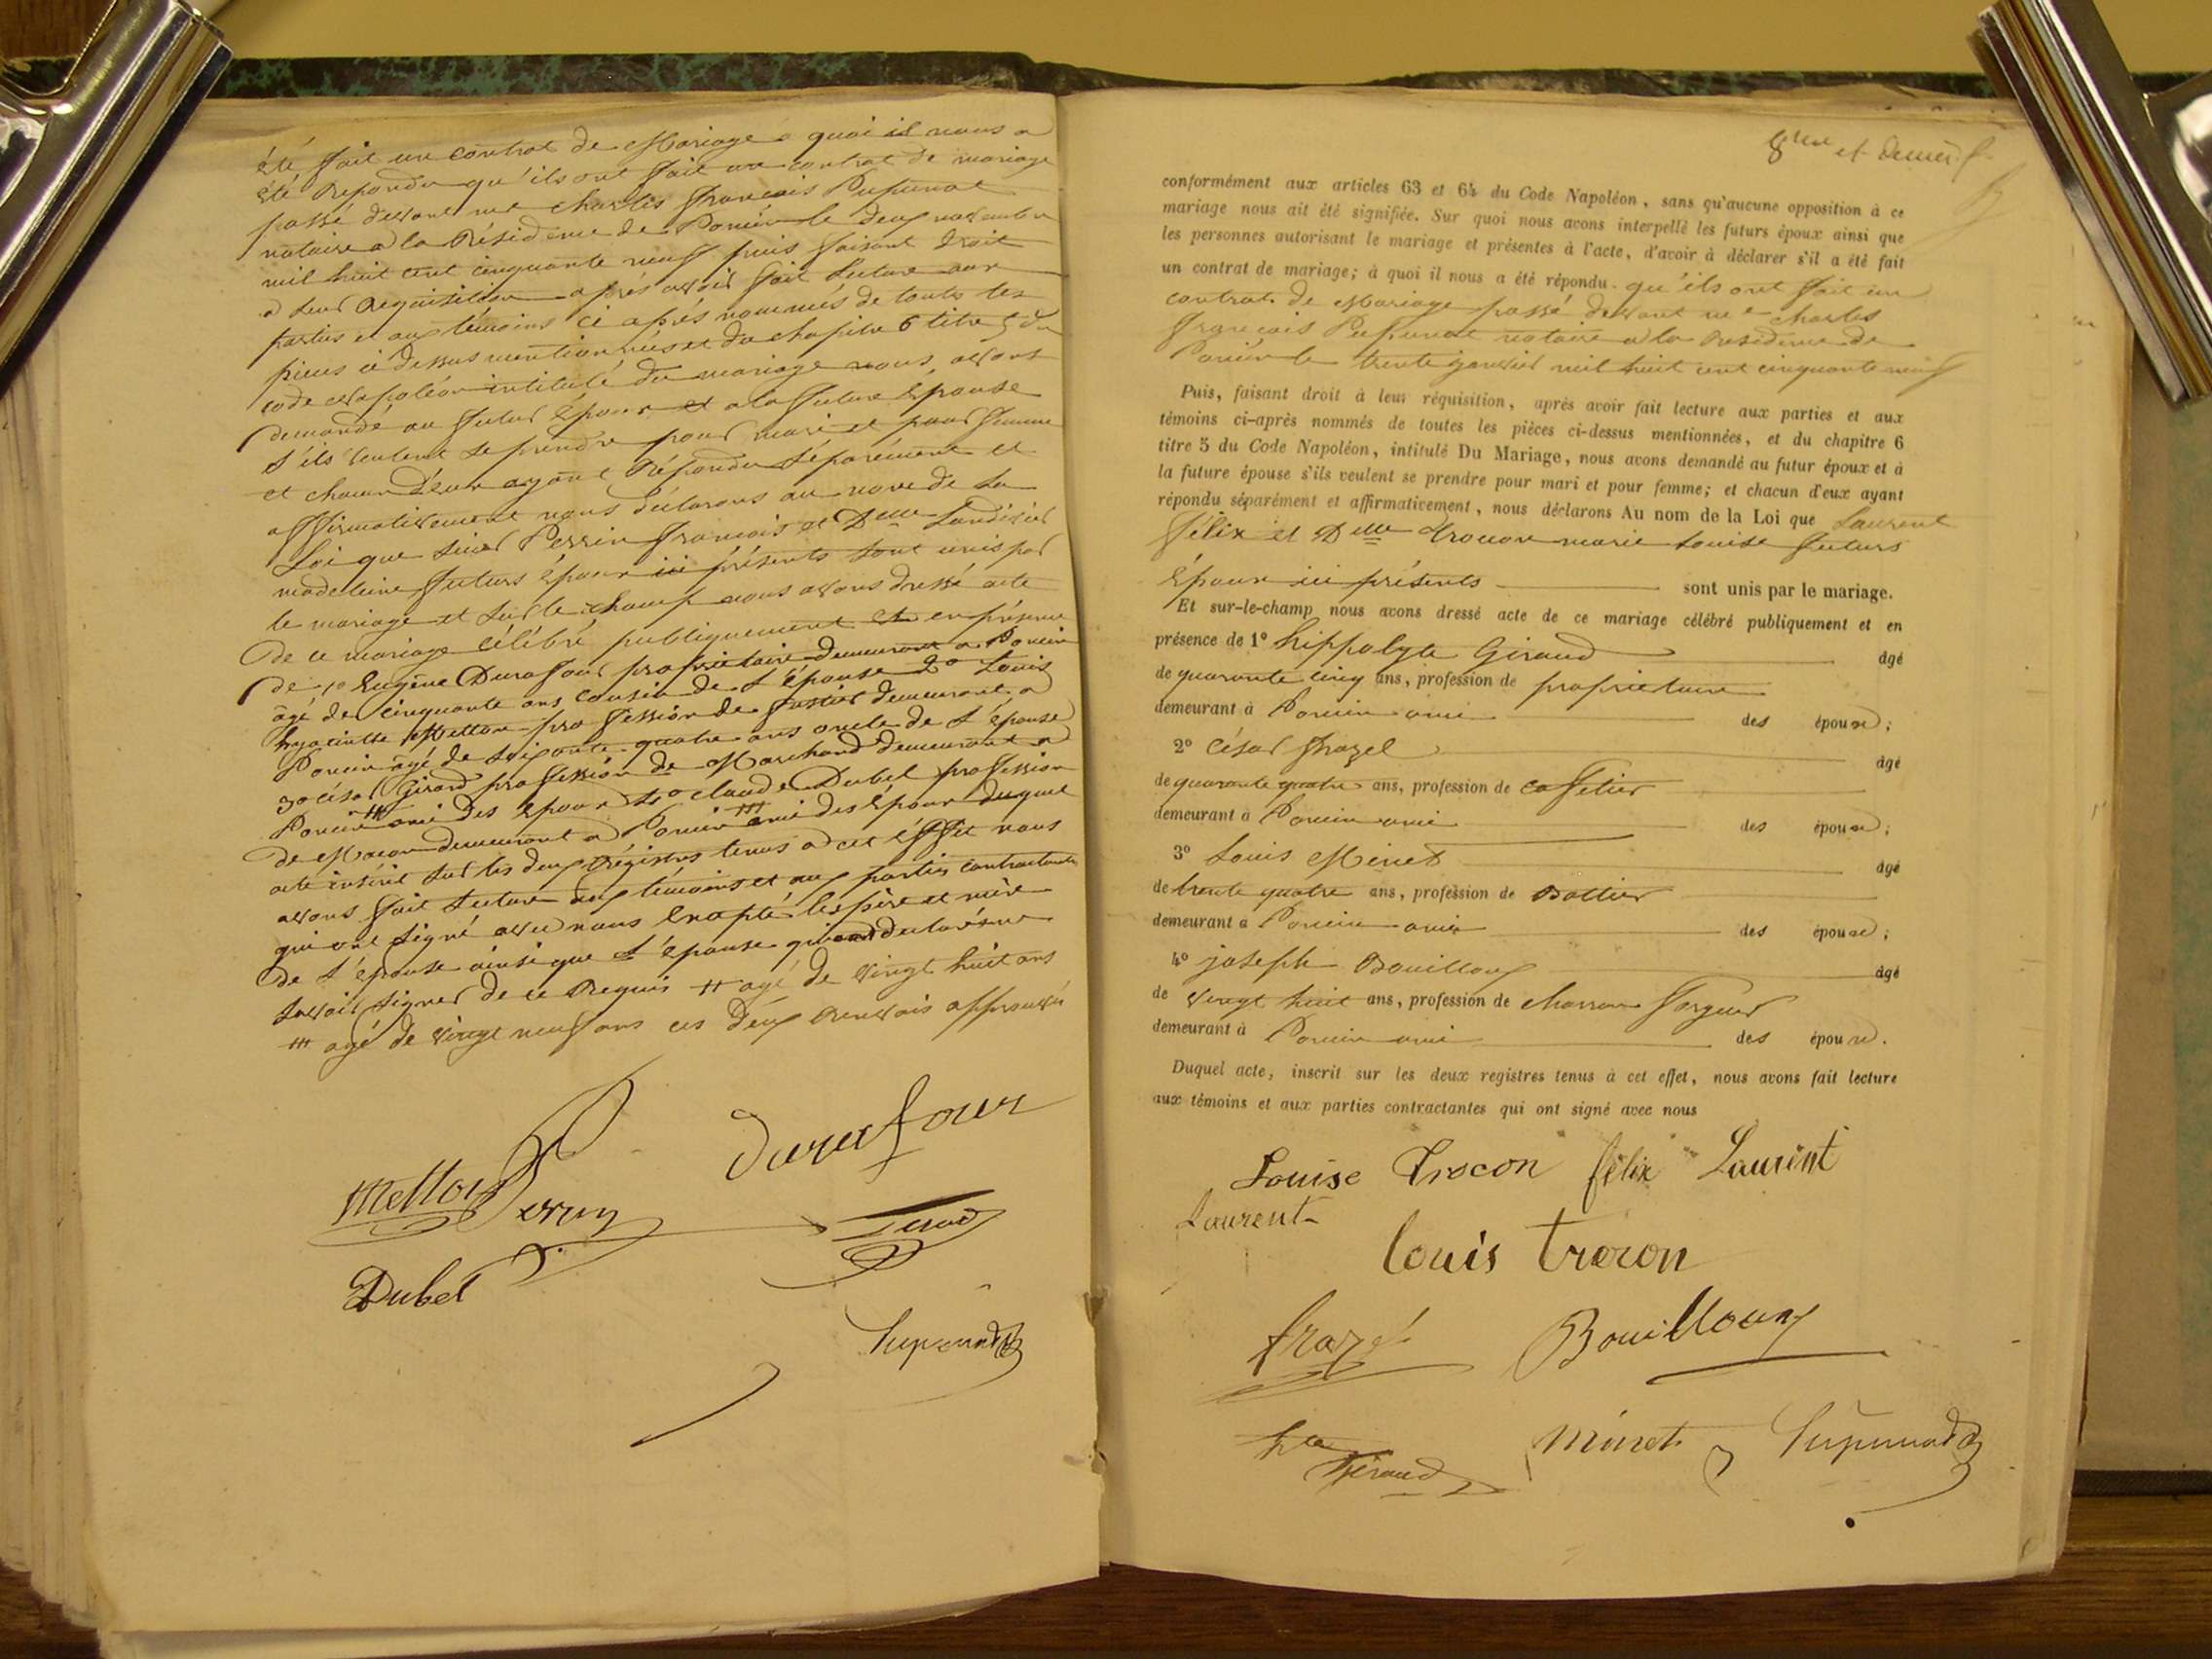 été fait un contrat de Mariage a quoi il nous a
été Repondu qu'ils ont fait un contrat de mariage
passé devant me charles francois
notaire a la Résidence de Poncin le deux novembre
mil huit cent cinquante neuf puis faisant droit
a leur Requisition après avoir fait lecture aux
parties et aux témoins ci après nommés de toutes les
pieces ci dessus mentionnées et du chapitre 6 titre 5 du
code Napoléon intitulé du mariage nous avons
demandé au futur Epoux et a la future Epouse
s'ils veulent se prendre pour mari et pour femme
et chacun d'eux ayant Répondu séparément et
affirmativement nous déclarons au nom de la
Loi que sieur Perrin francois et Delle
madeleine futurs Epoux ici présents sont unis par
le mariage et sur le champ nous avons dressé acte
De ce mariage célébré publiquement et en présence
de 1o Eugène Durafour propriétaire demeurant a Poncin
âgé de cinquante ans cousin de l'épouse 2o Louis
hyacinthe Metton profession de demeurant a
Poncin âgé de soixante quatre ans oncle de l'épouse
3o césar Girard profession de Marchand demeurant a
Poncin # ami des Epoux 4o claude Dubel profession
de Macon demeurant a Poncin ami des Epoux duquel
acte inscrit sur les deux Régistres tenus a cet éffet nous
avons fait lecture aux témoins et aux parties contractantes
qui ont signé avec nous Excepté les père et mère
de l'épouse ainsi que l'épouse qui ont declaré ne
savoir signer de ce Requis # agé de vingt huit ans
agé de vingt neuf ans ces deux Renvois approuvés
Metton Perrin Durafour
Dubel
8me et demier f.
conformément aux articles 63 et 64 du Code Napoléon, sans qu'aucune opposition à ce
mariage nous ait été signifiée. Sur quoi nous avons interpellé les futurs époux ainsi que
les personnes autorisant le mariage et présentes à l'acte, d'avoir à déclarer s'il a été fait
un contrat de mariage; à quoi il nous a été répondu qu'ils ont fait un
contrat de Mariage passé devant me charles
francois notaire a la Residence de
Poncin le trente janvier mil huit cent cinquante neuf
Puis, faisant droit à leur réquisition, après avoir fait lecture aux parties et aux
témoins ci-après nommés de toutes les pièces ci-dessus mentionnées, et du chapitre 6
titre 5 du Code Napoléon, intitulé Du Mariage, nous avons demandé au futur époux et à
la future épouse s'ils veulent se prendre pour mari et pour femme; et chacun d'eux ayant
répondu séparément et affirmativement, nous déclarons Au nom de la Loi que Laurent
félix et Delle Trocon marie Louise futurs
Epoux ici présents sont unis par le mariage.
Et sur-le-champ nous avons dressé acte de ce mariage célébré publiquement et en
présence de 1° hippolyte Giraud âgé
de quarante cinq ans, profession de propriétaire
demeurant à Poncin ami des époux;
2° César frazel âgé
de quarante quatre ans, profession de cafetier
demeurant à Poncin ami des époux;
3° Louis Minet âgé
de trente quatre ans, profession de Bottier
demeurant à Poncin ami des époux;
4° joseph Bouilloux âgé
de vingt huit ans, profession de charron forgeur
demeurant à Poncin ami des époux.
Duquel acte, inscrit sur les deux registres tenus à cet effet, nous avons fait lecture
aux témoins et aux parties contractantes qui ont signé avec nous
Louise Trocon félix Laurent
Laurent
Louis Trocon
frazel Bouilloux
hte Giraud minet